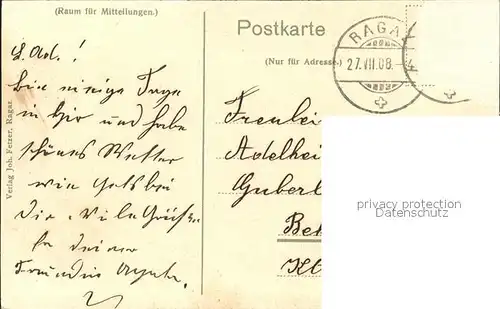 (Raum für Mitteilungen.)
Postkarte
(Nur für Adresse.)
RAGAZ
27.VII.08.
Verlag Joh. Fetzer, Ragaz
L. Ad.!
Bin einige Tage
in hier und habe
schönes Wetter
wie
Die. Viele Grüsse
deiner
Freundin
Freulei
Adelhei
Gubert
Be
Kt
privacy protection
Datenschutz